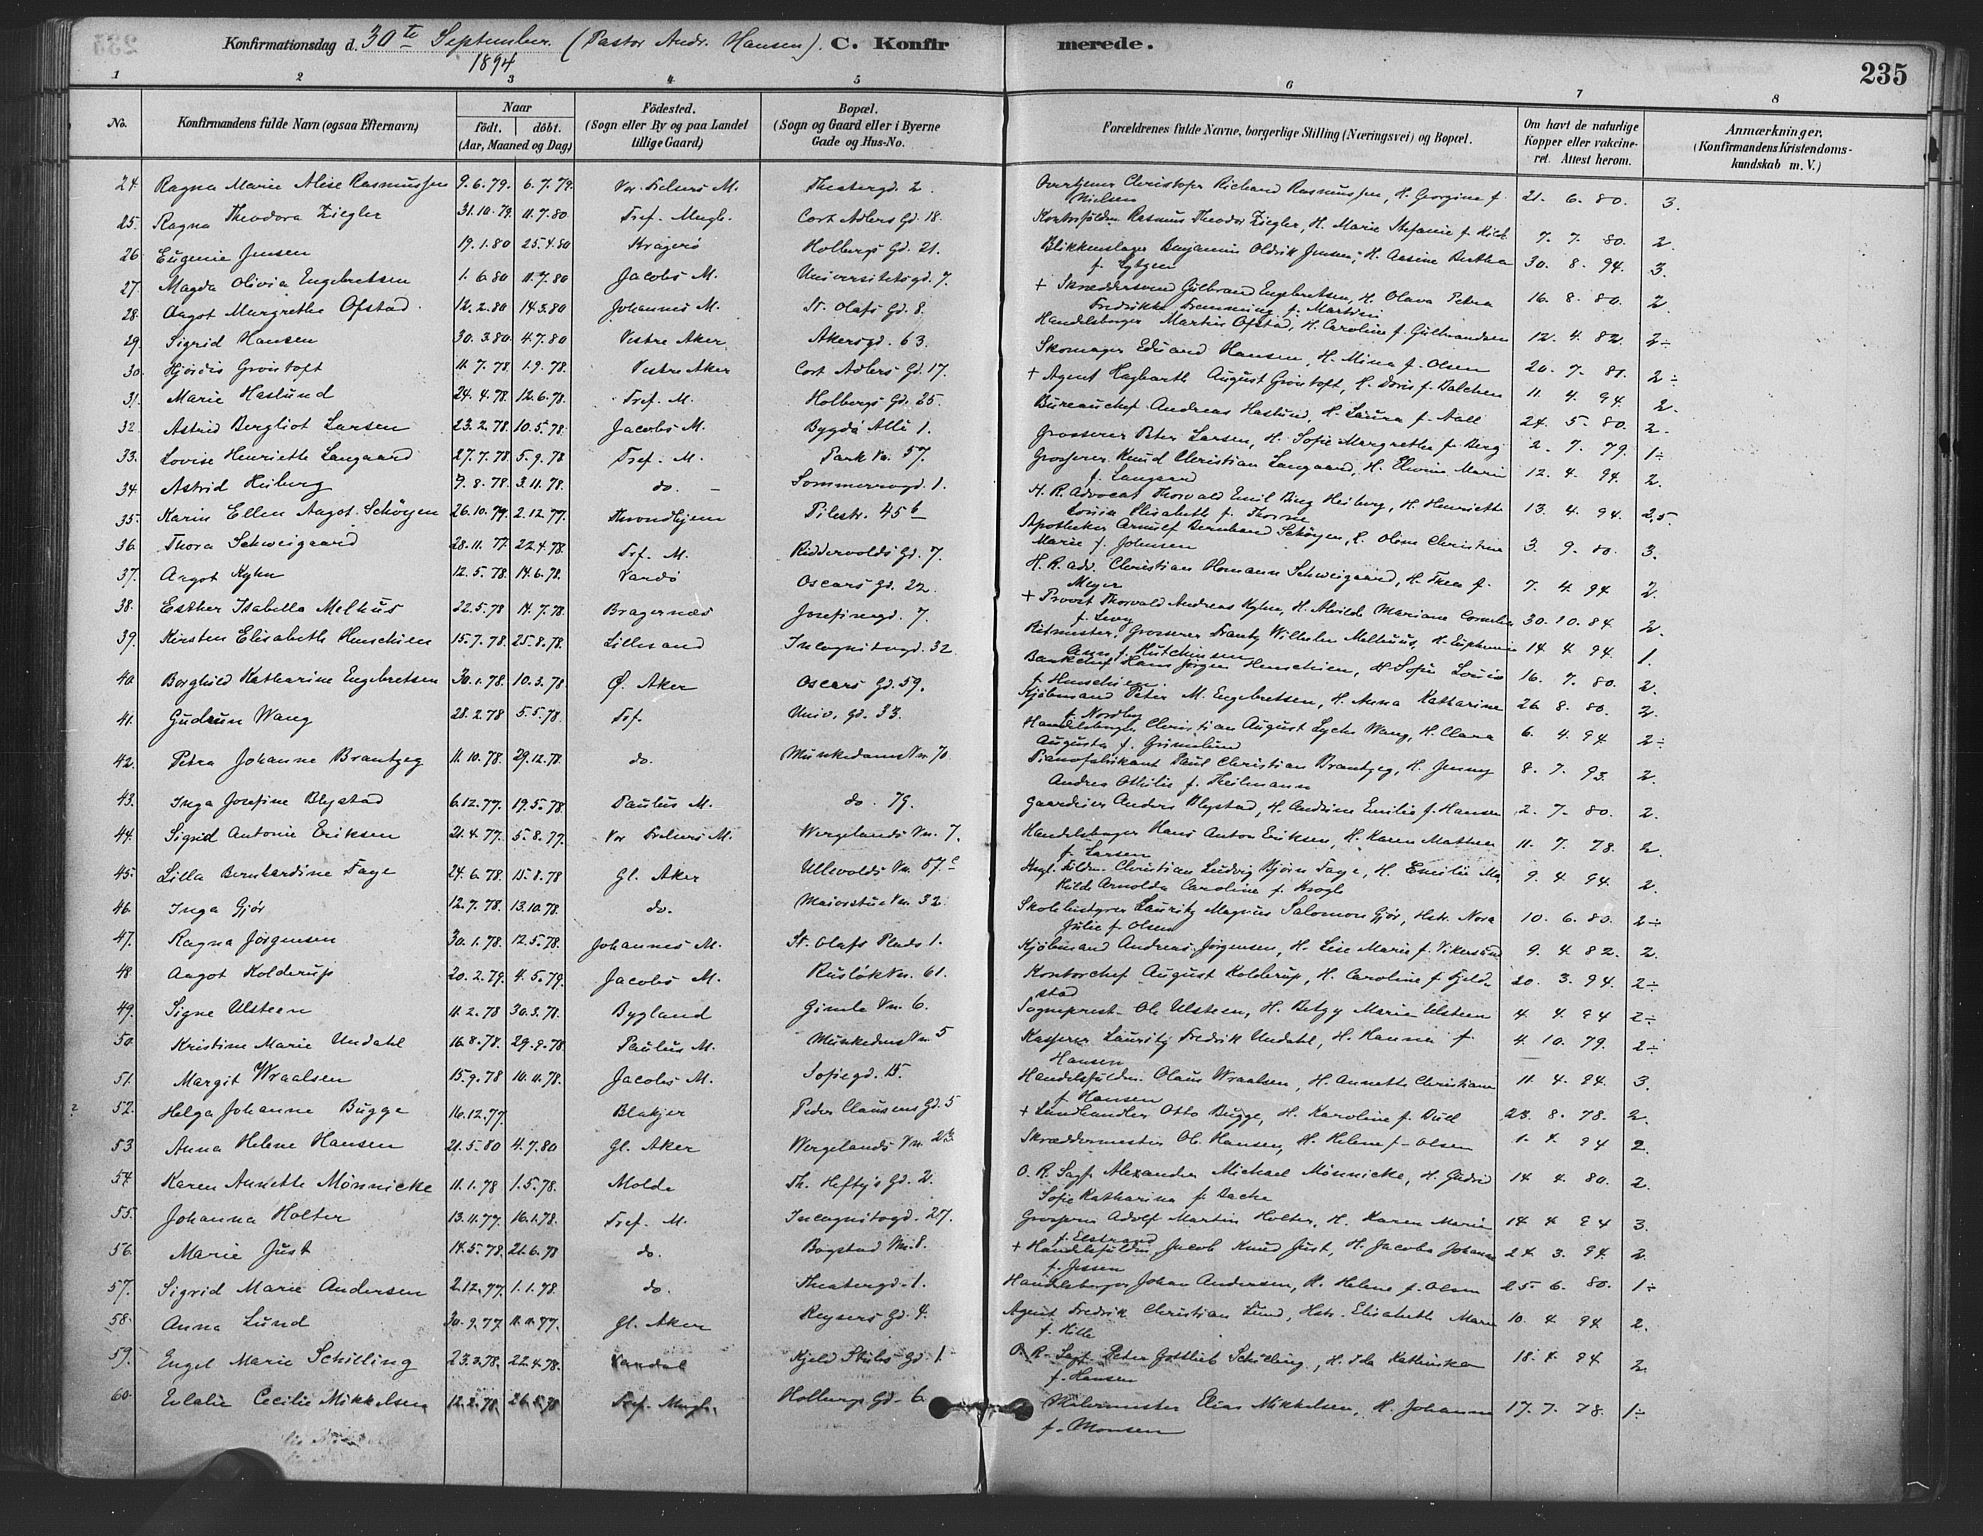 Konfirmationsdag d. 30te September. (Pastor Andr. Hansen). C. Konfir merede.
1894
235
1 2 3 4 5 6 7 8
No.
Konfirmandens fulde Navn (ogsaa Efternavn)
Naar
födt. döbt.
(Aar, Maaned og Dag)
Födested.
(Sogn eller By og paa Landet
tillige Gaard)
Bopæl.
(Sogn og Gaard eller i Byerne
Gade og Hus-No.
Forældrenes fulde Navne, borgerlige Stilling (Næringsvei) og Bopæl.
Om havt de naturlige
Kopper eller vakcine-
ret. Attest herom.
Anmærkninger.
(Konfirmandens Kristendoms-
kundskab m. V.)
24. Ragna Marie Alise Rasmussen 9.6.79. 6.7.79. Vor Frelsers M. Theatergd. 2. Christofer Richard Rasmussen, H. Georgine f. 21. 6. 80. 3.
Nielsen
25. Ragna Theodora Ziegler 31.10.79. 11.7.80 Tref. Mngh. Cort Adlers Gd. 18. Rasmus Theodor Ziegler, H. Marie Stefanie f. 7. 7. 80. 2.
26. Eugenie Jensen 19.1.80 25.4.80 Kragerö Holbergs Gd. 21. Blikkenslager Benjamin Oldrik Jensen, H. Bertha 30. 8. 94. 3.
27. Magda Olivia Engebretsen 1.6.80 11.7.80 Jacobs M. Universitetsgd. 7. + Skræddersvend Gulbrand Engebretsen, H. Olava Petra 16. 8. 80. 2.
Fredrikke f. Martini
28. Aagot Margrethe Ofstad 12.2.80 14.3.80 Johannes M. St. Olafs Gd. 8. Handelsborger Martin Ofstad, H. Caroline f. Gulbrandsen 12. 4. 82. 2÷
29. Sigrid Hansen 30.3.80 4.7.80 Vestre Aker. Akersgd. 63. Skomager Eduard Hansen, H. Mina f. Olsen 20. 7. 81. 2÷
30. Hjördis Gröntoft 11.7.78 1.9.78. Vestre Aker Cort Adlers Gd. 17. + Agent Hagbarth August Gröntoft, H. Doris f. Dalchen 11. 4. 94. 2.
31. Marie Haslund 24.4.78 12.6.78. Tref. M. Holbergs Gd. 25. Bureauchef Andreas Haslund, H. Laura f. Aall 24. 5. 80. 2.
32. Astrid Bergliot Larsen 23.2.78 10.5.78. Jacobs M. Bygdö Allé 1. Grosserer Peter Larsen, H. Sofie Margrethe f. Berg 2. 7. 79. 1÷
33. Lovise Henriette Langaard 27.7.78 5.9.78 Tref. M. Park Vn. 57. Grosserer Knud Christian Langaard, H. Elvine Marie 12. 4. 94. 2.
f. Langaard
34. Astrid Heiberg 9.8.78. 3.11.78. do. Sommerrogd. 1. H. R. Advocat Thorvald Emil Bing Heiberg, H. Henriette 13. 4. 94. 2,5.
Lovise Elisabeth f. Thorne
35. Karin Ellen Aagot Schöyen 26.10.79. 2.12.77. Throndhjem Pilestr. 45b Apotheker Arnulf Bernhard Schöyen, H. Oline Christine 3. 9. 80. 3.
Marie f. Johnsen
36. Thora Schweigaard 28.11.77 22.4.78. Trf. M. Riddervolds Gd. 7. H. R. adv. Christian Homann Schweigaard, H. Thea f. 7. 4. 94 2.
Meyer
37. Aagot Kyhn 12.5.78. 14.6.78. Vardö Oscars Gd. 22. + Provst Thorvald Andreas Kyhn, H. Alvilde Mariane Cornelia 30. 10. 84. 2.
38. Esther Isabella Melhus 22.5.78 14.7.78. Bragernæs Josefinegd. 7. Ritmester, Grosserer Frantz Wilhelm Melhuus, H. Euphemia 14. 4. 94. 1.
Ann f. Hutchinson
39. Kirsten Elisabeth Henschien 15.7.78 25.8.78. Lillesand Incognitogd. 32. Bankchef Hans Jörgen Henschien, H. Sofie Lovise 16. 7. 80. 2.
f. Henschien.
40. Borghild Katharine Engebretsen 30.1.78 10.3.78. Ø. Aker Oscars Gd. 59. Kjöbmand Peter M. Engebretsen, H. Anna Katharine 26. 8. 80. 2.
f. Nordby
41. Gudrun Wang 28.2.78 5.5.78. Trf. Univ. Gd. 33. Handelsborger Christian August Lyche Wang, H. Clara 6. 4. 94. 2÷
Augusta f. Grimelund
42. Petra Johanne Brantzeg 11.10.78. 29.12.78. do. Munkedams Vn. 70. Pianofabrikant Paul Christian Brantzeg, H. Jenny 8. 7. 93. 2.
Andrea Ottilie f. Theilmann
43. Inga Josefine Blystad 6.12.77. 19.5.78. Paulus M. do. 79. Gaardeier Anders Blystad, H. Andrine Emilie f. Hansen 2. 7. 80. 2.
44. Sigrid Antonie Eriksen 21.4.77. 5.8.77. Vor Frelsers M. Wergelands Vn. 7. Handelsborger Hans Anton Eriksen, H. Karen Mathea 11. 7. 78. 2.
f. Larsen
45. Lilla Bernhardine Faye 24.6.78 15.8.78 Gl. Aker Ullevolds Vn. 57c Christian Ludvig Björn Faye, H. Emilie Ma- 9. 4. 94. 2.
thilde Arnolda Caroline f. Krogh
46. Inga Gjör 12.7.78. 13.10.78. do. Majorstue Vn. 32. Skolebestyrer Lauritz Magnus Salomon Gjör, Hstr. Nora 10. 6. 80. 2÷
Julie f. Olsen
47. Ragna Jörgensen 30.1.78. 12.5.78. Johannes M. St. Olafs Plads 1. Kjöbmand Andreas Jörgensen, H. Lise Marie f. Vikersund 9. 4. 82. 2.
48. Aagot Kolderup 20.2.79. 4.5.79. Jacobs M. Rusløk Vn. 61. Kontorchef August Kolderup, H. Caroline f. Fjeld- 20. 3. 94. 2÷
stad
49. Signe Ulsteen 11.2.78 30.3.78. Bygland Gimle Vn. 6. Sogneprest Ole Ulsteen, H. Betzy Marie Ulsteen 4. 4. 94 2÷
50. Kristine Marie Undahl 16.8.78. 29.9.78. Paulus M. Munkedams Vn. 5 Kasserer Lauritz Fredrik Undahl, H. Hanna f. 4. 10. 79. 2÷
Hansen
51. Margit Wraalsen 15.9.78 10.11.78. Jacobs M. Sofiegd. 15. Handelsfuldm. Olaus Wraalsen, H. Annette Christiane 11. 4. 94. 3.
f. Hansen
52. Helga Johanne Bugge 16.12.77. Blakjer Peder Clausens Gd. 5 + Landhandler Otto Bugge, H. Karoline f. 23. 8. 78. 2.
53 Anna Helene Hansen 21.5.80 4.7.80 Gl. Aker Wergelands Vn. Skræddermester Ole Hansen, H. Helene f. Olsen 1. 4. 94 2.
54. Karen Annette Mönnicke 11.1.78 1.5.78. Molde Th. Heftys Gd. 2. O. R. Sagf. Alexander Michael Mönnicke, H. 14 4. 80. 2.
Sofie Katharina f. Dache
55. Johanna Holter 13.11.77. 16.1.78. Tref. M. Incognitogd. 27. Grosserer Adolf Martin Holter, H. Karen Marie 14 4 94 3.
f. Elstrand
56. Marie Just 14.5.78. 21.6.78 do. Bogstad Vn. 8. + Handelsfuldm. Jacob Knud Just, H. Jacoba Johanne 24. 3. 94. 2.
f. Jessen
57. Sigrid Marie Andersen 2.12.77. 1.1.78. do. Theatergd. 1. Handelsborger Johan Andersen, H. Helene f. Olsen 25. 6. 80. 1÷
58. Anna Lund 30.9.77. 11.11.77. Gl. Aker Keysers Gd. 4. Agent Fredrik Christian Lund, Hstr. Elisabeth Marie 10. 4. 94. 2.
f. Hille
59. Engel Marie Schilling 23.3.78. 22.4.78. Kjeld Stubs Gd. 1. O. R. Sagf. Peter Gottlieb Schilling, H. Ida Kathinka 18. 4. 94 2.
f. Hansen
60. Eulalie Cecilie Mikkelsen 12.2.78. 26.5.78 Tref. Mngh. Holbergs Gd. 6. Malermester Elias Mikkelsen, H. Johanne 17. 7. 78. 1÷
f. Monsen